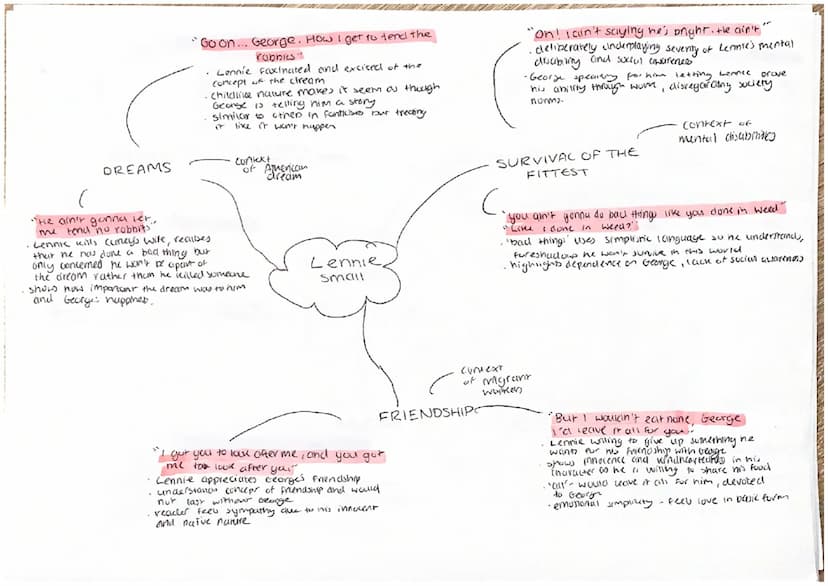 "Go on... George. How I get to tend the
rabbits"
· Lennie fascinated and excited at the
concept of the dream
· childlike nature makes it seem as though
George is telling him a story
· similar to others in but treating
it like it won't happen
DREAMS
context
of American
dream
"He ain't gonna let
me tend no rabbits"
· Lennie kills Curleys wife, realises
that he has done a bad thing but
only concerned he won't be apart of
the dream rather than he killed someone
· shows how important the dream was to him
and George's happiness.
"Oh! I can't saying he's bright. He ain't"
· deliberately underplaying severity of Lennie's mental
disability and social awareness
· George speaking for him letting Lennie prove
his ability through work, disregarding society
norms.
context of
mental disabilities
SURVIVAL OF THE
FITTEST
"you ain't gonna do bad things like you done in weed"
"Like I done in weed?"
· 'bad things' uses simplistic language so he understands,
foreshadows he won't survive in this world
· highlights dependence on George, lack of social awareness
Lennie
Small
context
of migrant
workers
FRIENDSHIP
"I got you to look after me, and you got
me to look after you"
· Lennie appreciates George's friendship
· understands concept of friendship and would
not last without George
· reader feels sympathy due to his innocent
and naive nature
"But I wouldn't eat none, George
I'd leave it all for you"
· Lennie willing to give up something he
wants for his friendship with George
· shows innocence and in his
character as he is willing to share his food
· 'all' - would leave it all for him, devoted
to George
· emotional simplicity - feels love in basic form